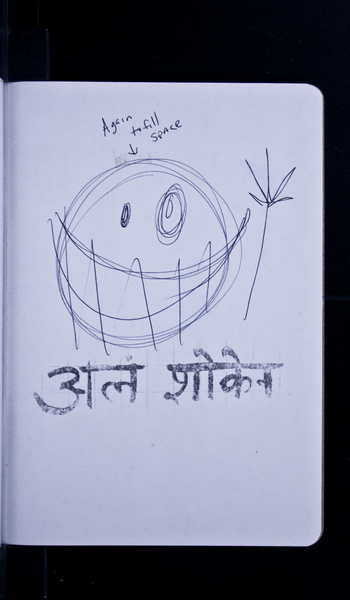 Again
to fill
space
अलं शोकेन